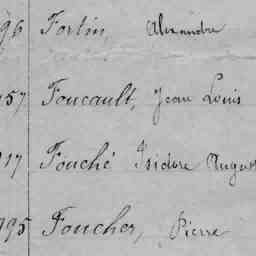 96 Fortin, Alexandre
157 Foucault, Jean Louis
917 Fouché Isidore August
995 Foucher, Pierre